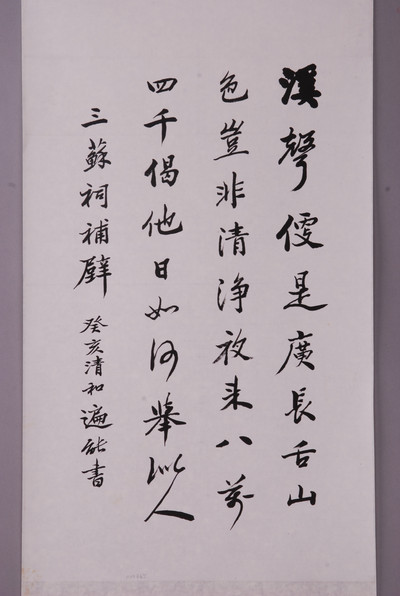 溪聲便是廣長舌山
色豈非清淨夜来八萬
四千偈他日如何舉似人
三蘇祠補壁 癸亥清和遍能書